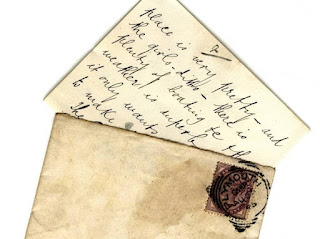 2
place is very pretty – and
the girls ditto – there is
plenty of boating &c the
weather is
it only wants
to make
The
MOUTH